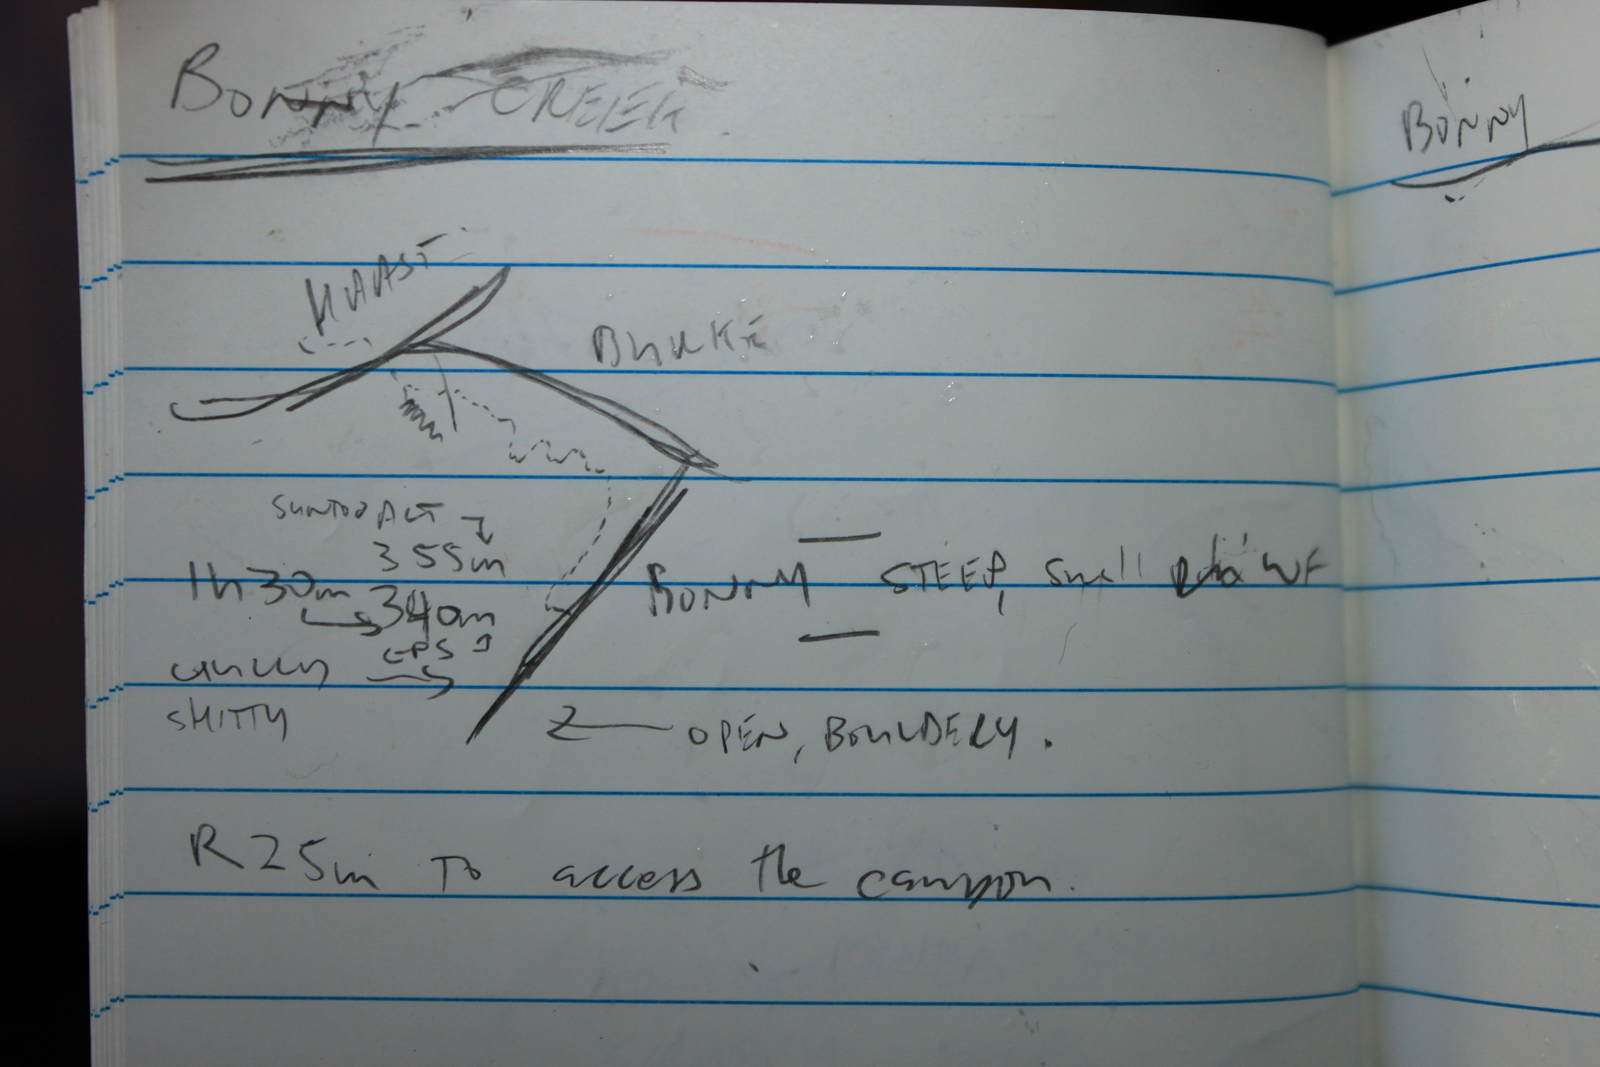 BONNY CREEK
BONNY
HAAST
BURKE
SUUNTO ALT
355m
1h30m
340m
GPS
BONNY STEEP, small WF
SHITTY
OPEN, BOULDERY.
R25m To access the canyon.